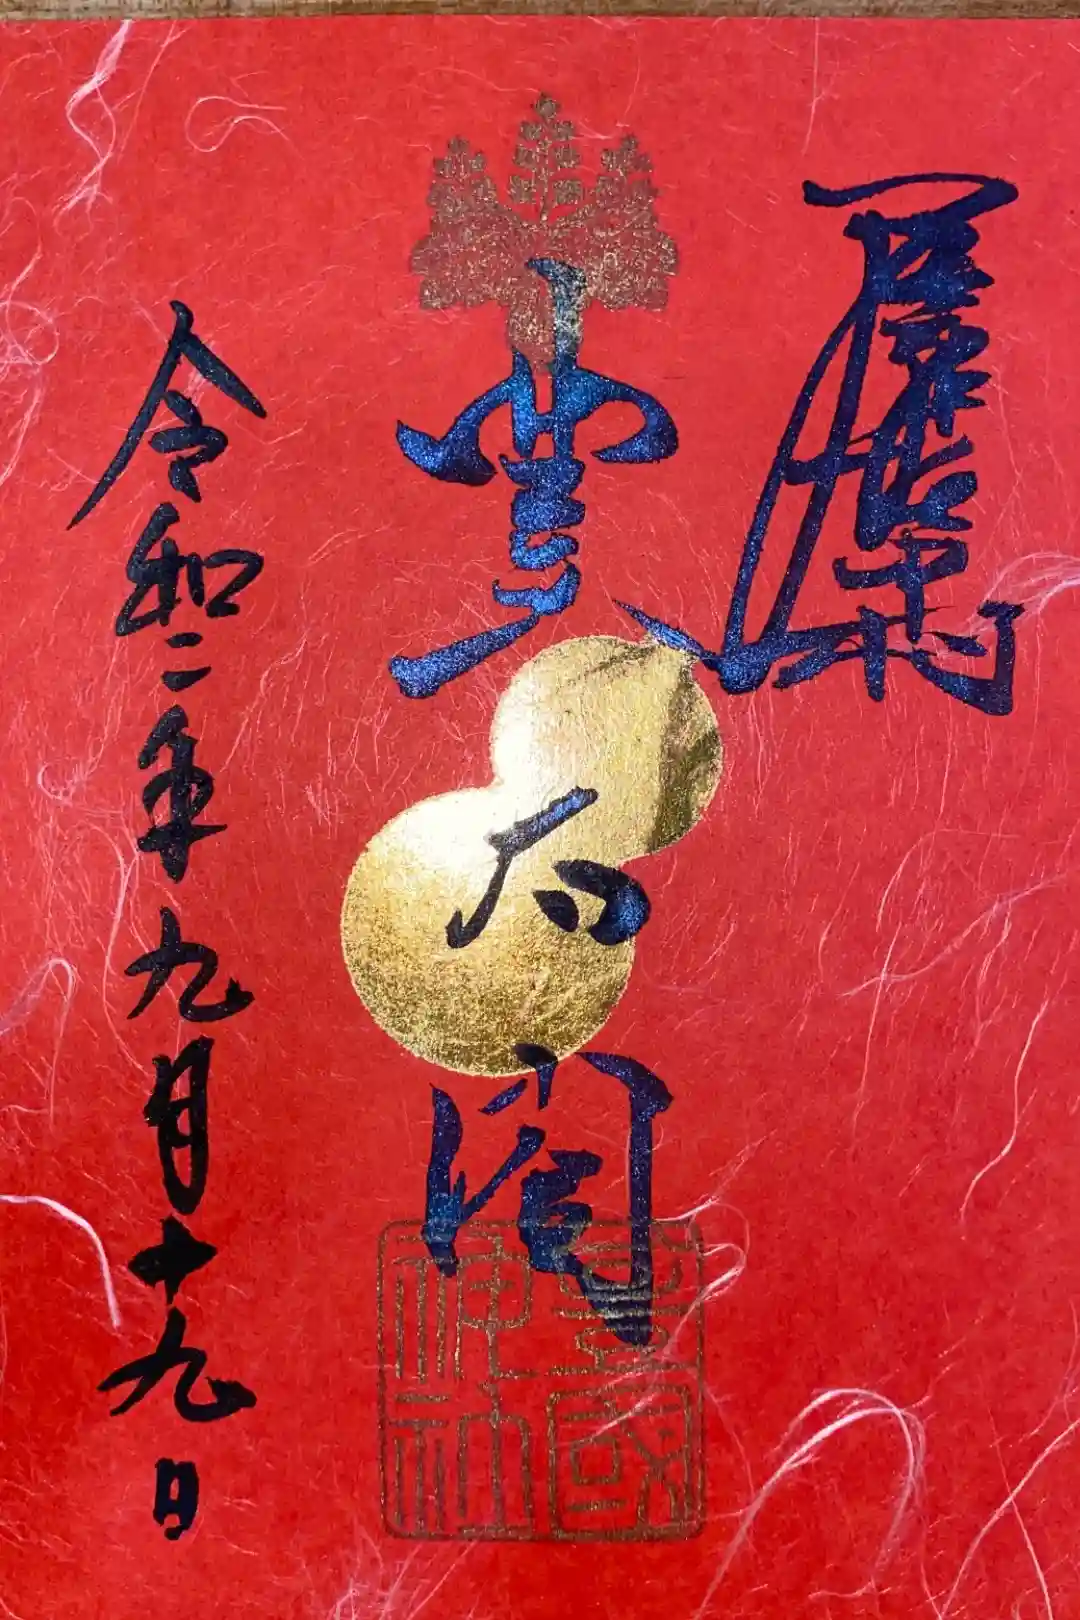 豊太閤
豊國
神社
令和二年九月十九日